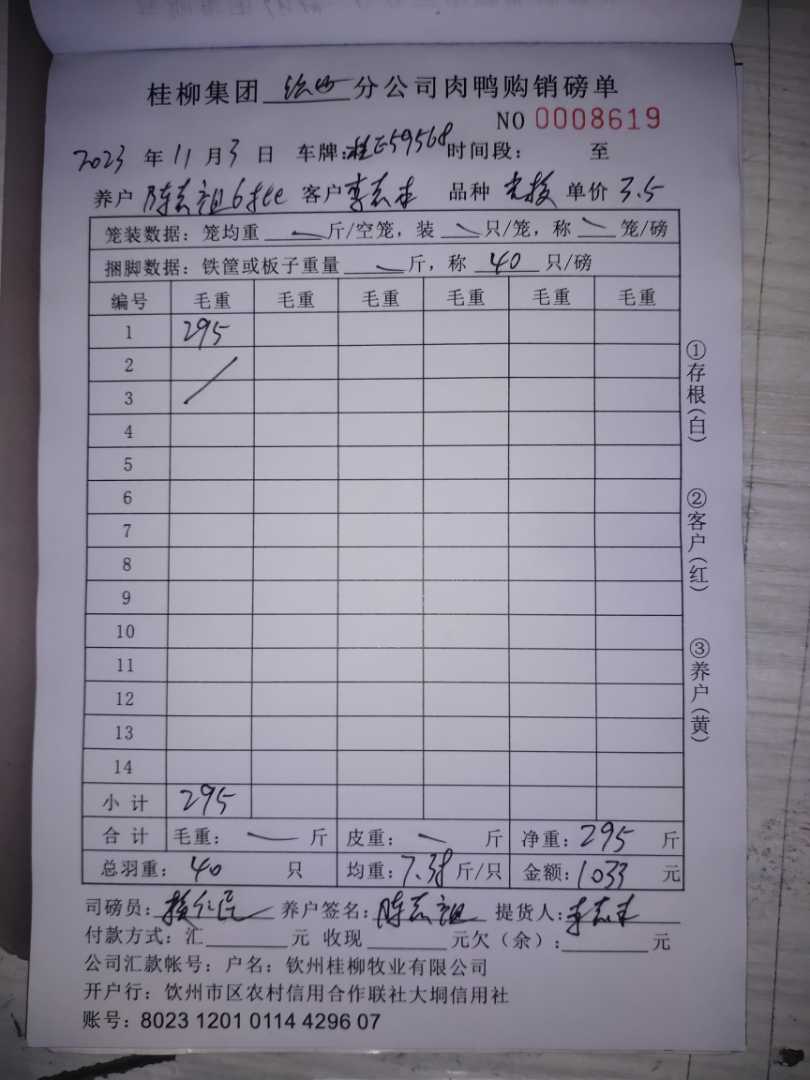 桂柳集团 分公司肉鸭购销磅单
NO 0008619
2023 年 11 月 3 日 车牌:桂E59568 时间段: 至
养户 陈志祖6批 客户 李志丰 品种 单价 3.5
笼装数据: 笼均重 斤/空笼, 装 只/笼, 称 笼/磅
捆脚数据: 铁筐或板子重量 斤, 称 40 只/磅
编号 毛重 毛重 毛重 毛重 毛重 毛重
1 295
2
3
4
5
6
7
8
9
10
11
12
13
14
小计 295
合计 毛重: 斤 皮重: 斤 净重: 295 斤
总羽重: 40 只 均重: 7.38 斤/只 金额: 1033 元
司磅员: 养户签名: 陈志祖 提货人: 李志丰
付款方式: 汇 元 收现 元欠(余): 元
公司汇款帐号: 户名: 钦州桂柳牧业有限公司
开户行: 钦州市区农村信用合作联社大垌信用社
账号: 8023 1201 0114 4296 07
①存根(白)
②客户(红)
③养户(黄)